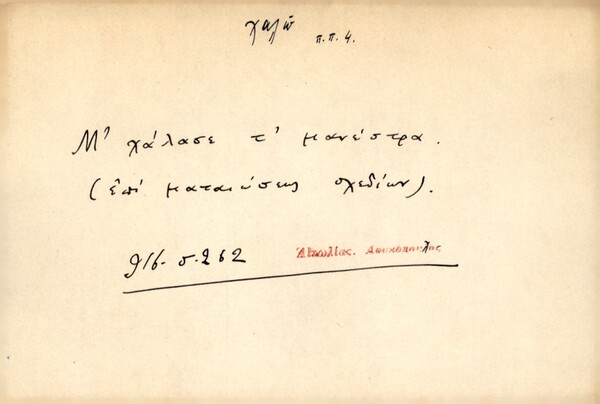 χαλῶ π.π. 4.
Μ' χάλασε τ' μανέστρα.
(ἐπί ματαιώσεως σχεδίων).
916. σ. 262 Αἰτωλίας. Λουκόπουλος